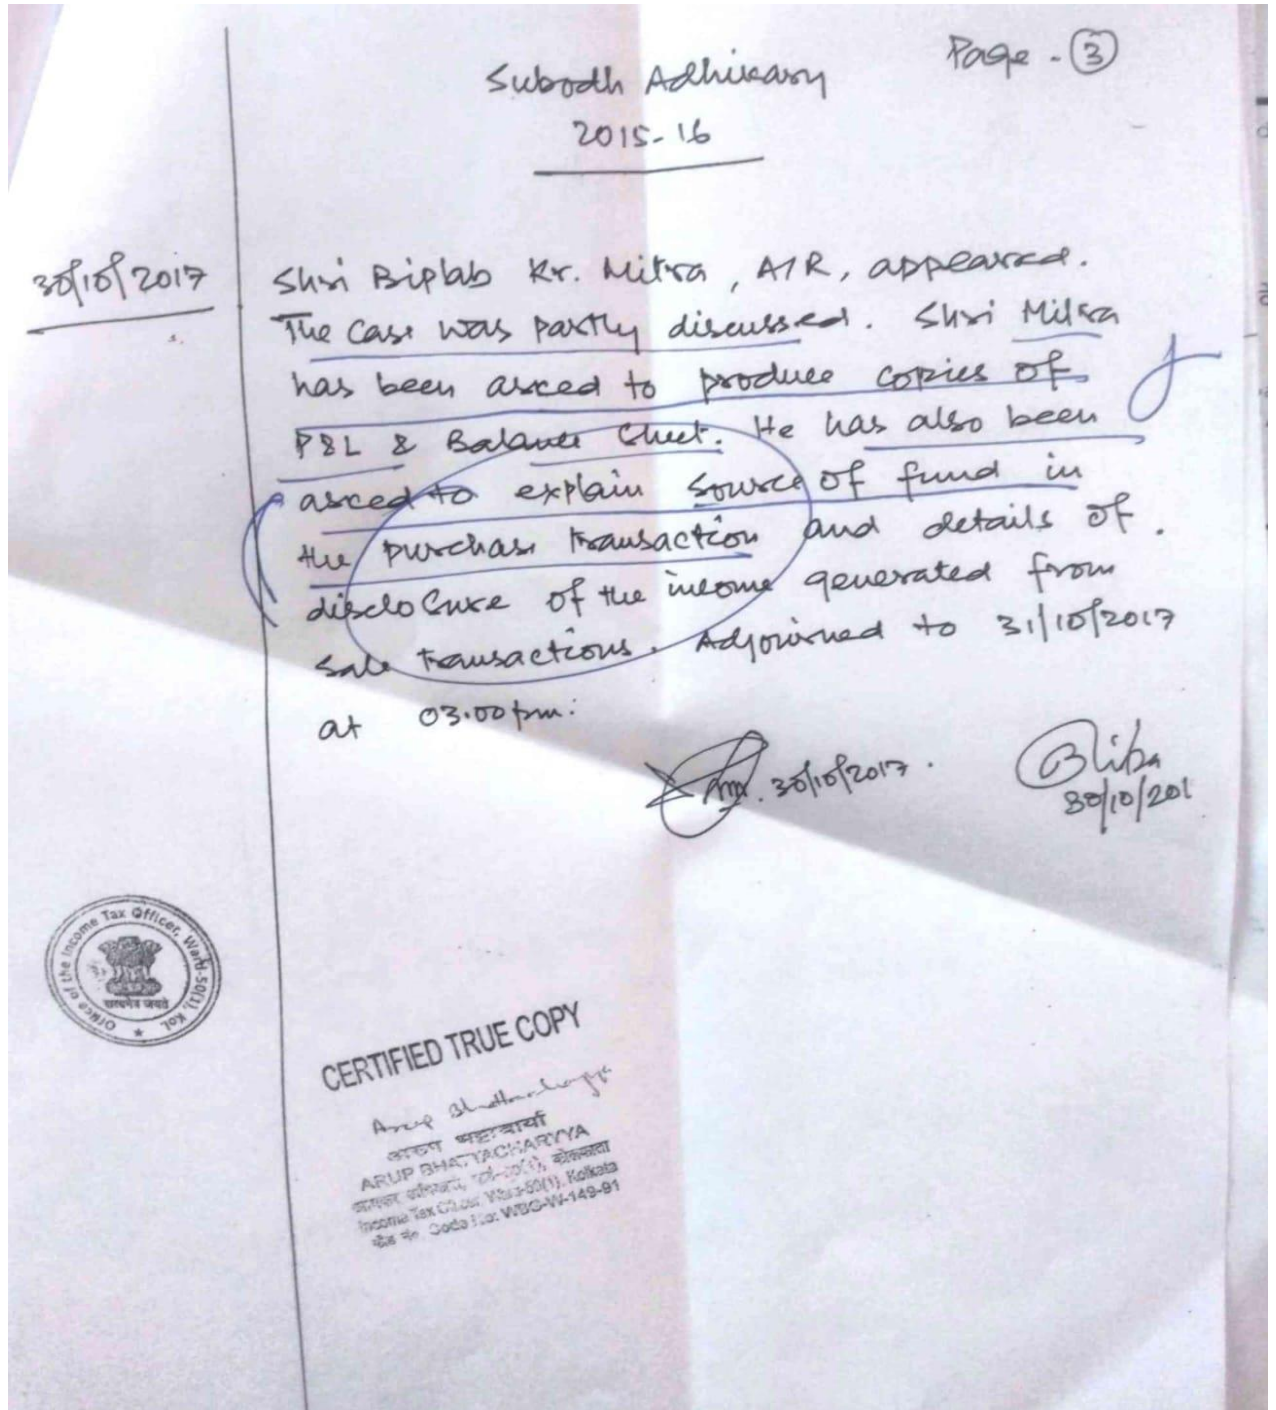 Page - 3
Subodh Adhikary
2015-16
30/10/2017
Shri Biplab Kr. Mitra, A/R, appeared.
The case was partly discussed. Shri Mitra
has been asced to produce copies of
P&L & Balance Sheet. He has also been
asced to explain source of fund in
the purchase transaction and details of
disclocure of the income generated from
sale transactions. Adjourned to 31/10/2017
at 03.00 pm.
30/10/2017.
30/10/201
Office of the Income Tax Officer, Ward-50(1), Kol.
सत्यमेव जयते
CERTIFIED TRUE COPY
Arup Bhattacharyya
ARUP BHATTACHARYYA
Income Tax Officer Ward-50(1), Kolkata
Code No: WBG-W-149-91